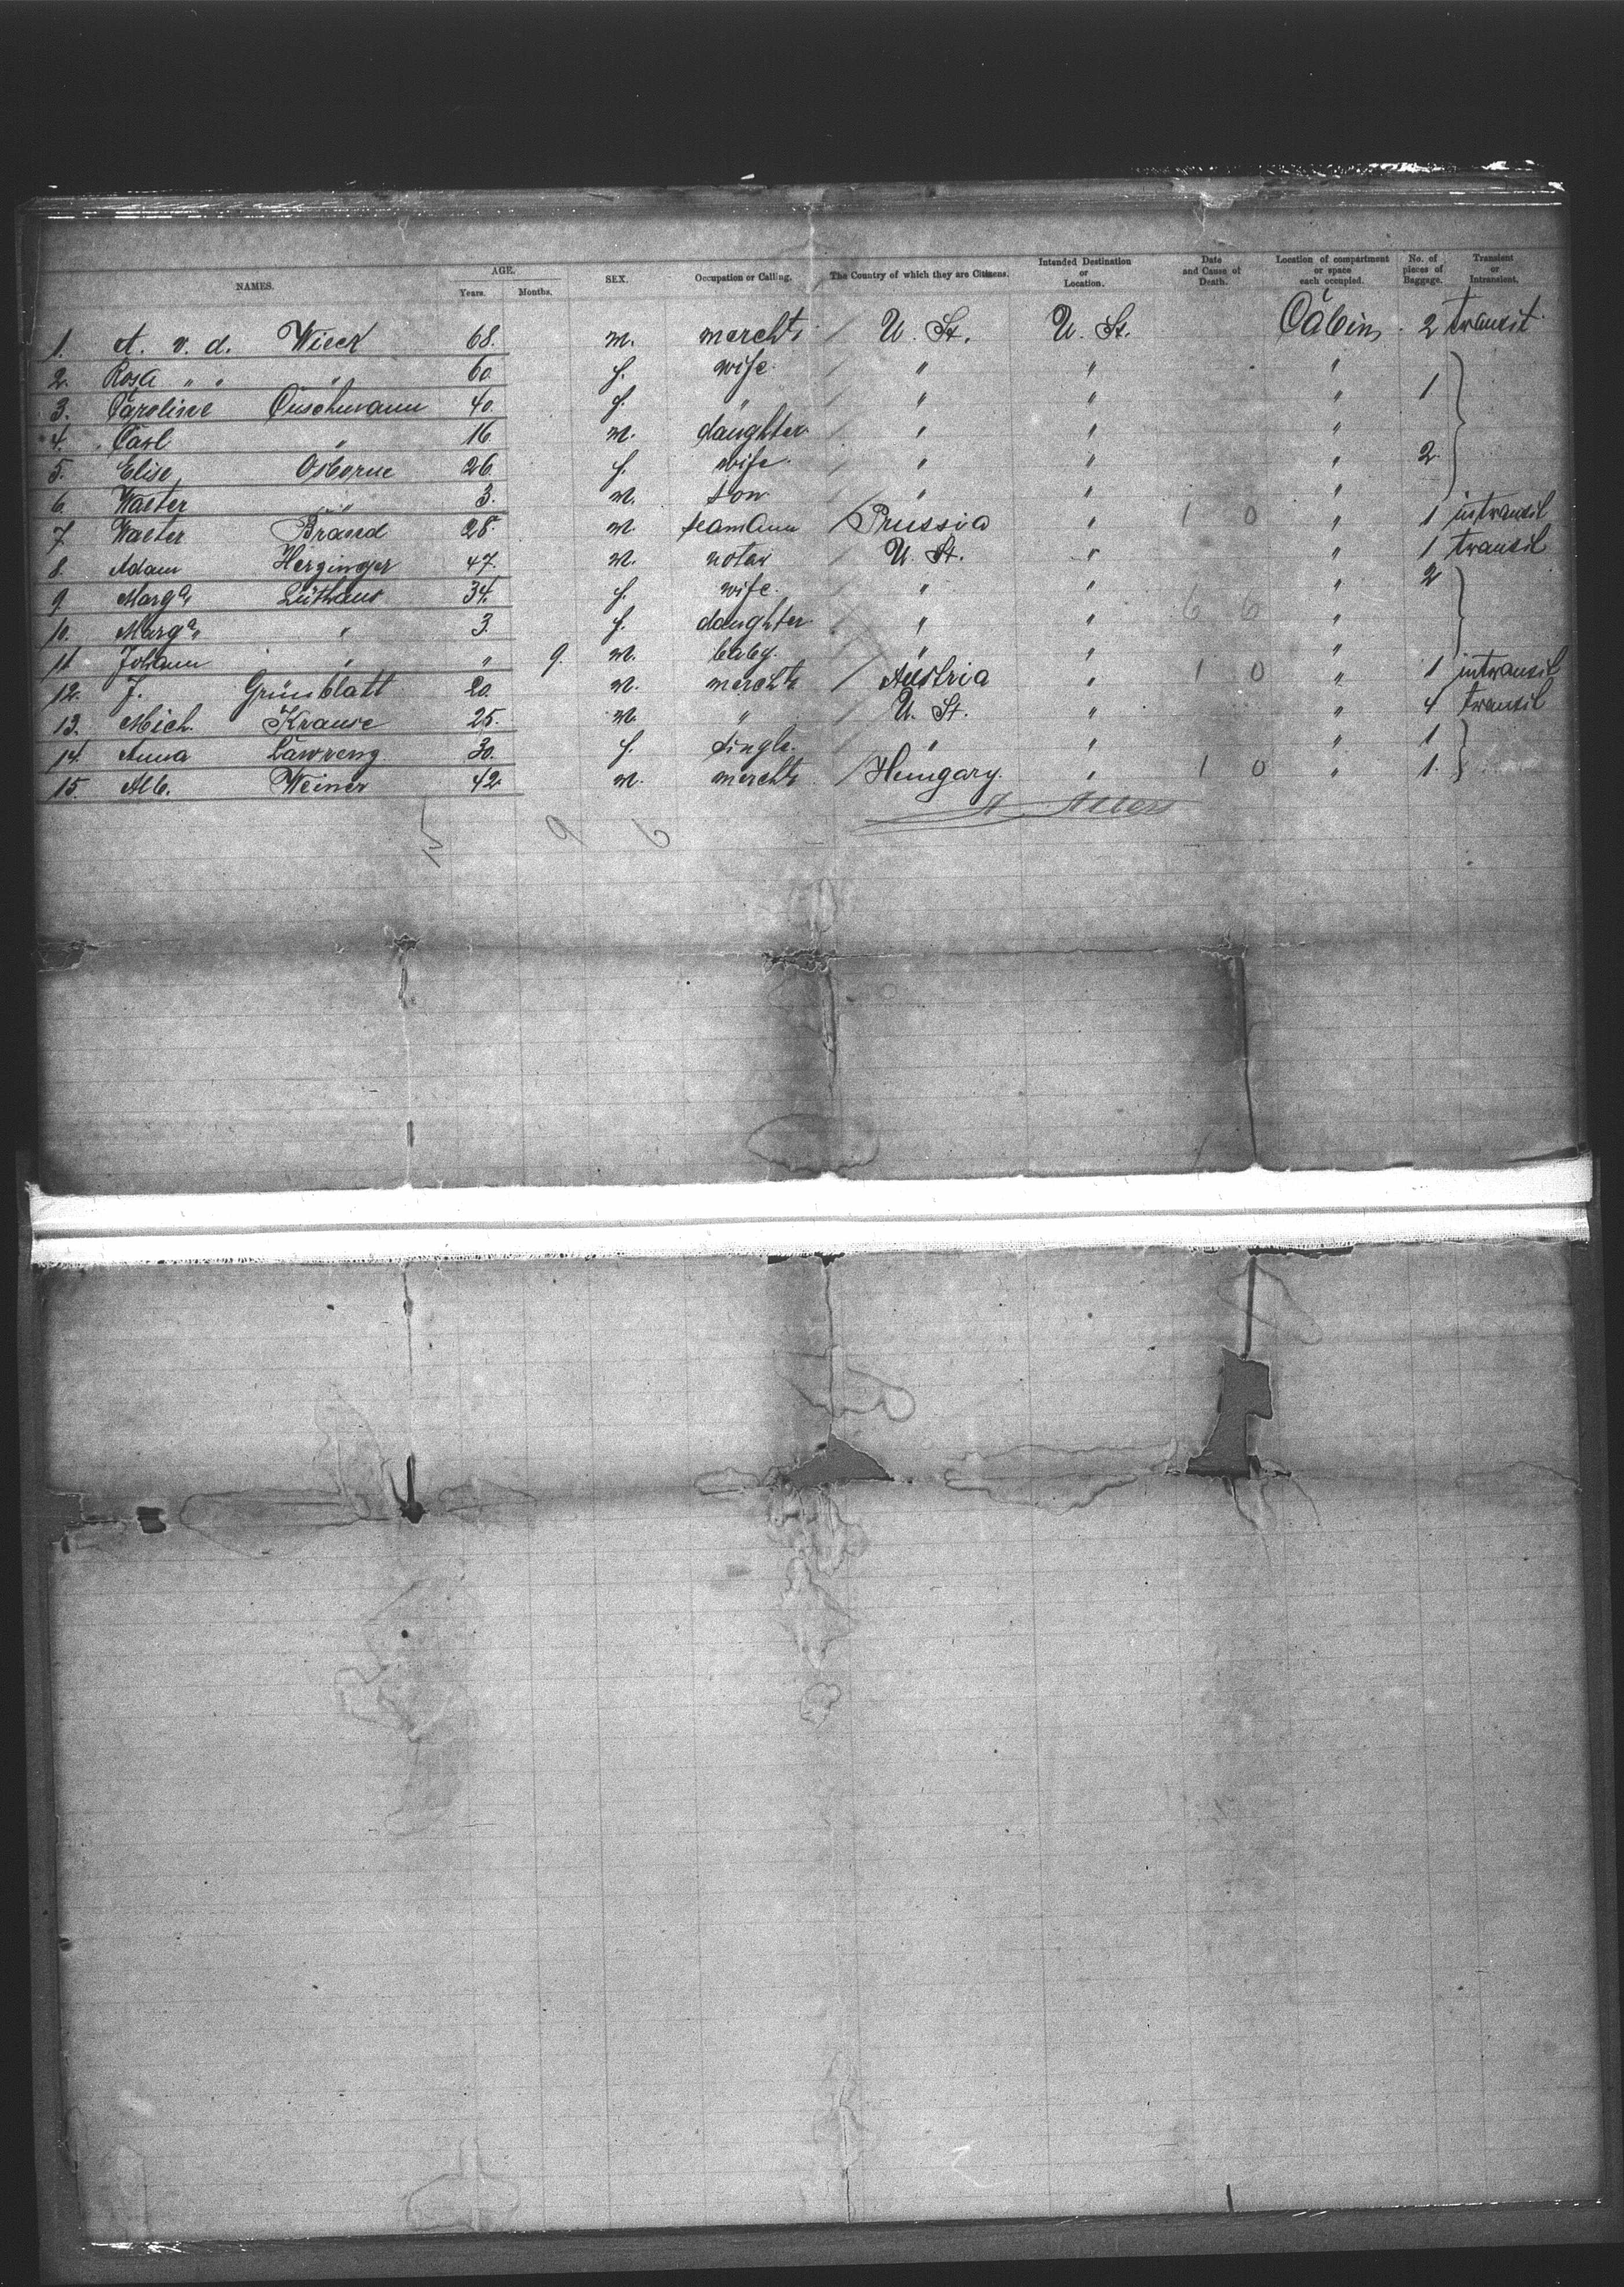 NAMES. AGE. Years. Months. SEX. Occupation or Calling. The Country of which they are Citizens. Intended Destination or Location. Date and Cause of Death. Location of compartment or space each occupied. No. of pieces of Baggage. Transient or Intransient.
1. A. v. d. Wieck 68. m. mercht. / U. St. U. St. Cabin 2 transit
2. Rosa " " " 60 f. wife. / " " "
3. Caroline 40. f. " / " " " 1
4. Carl " 16 m. daughter / " " "
5. Elise Osborne 26 f. wife. / " " " 2
6. Walter " 3. m. son / " " "
7. Walter Brand 28. m. seamann / Prussia " 1 0 " 1 intransit
8. Adam Herzinger 47. m. / U. St. " " 1 transit
9. Marga. 34. f. wife. / " " " 2
10. Marga. " 3. f. daughter / " " 6 6 "
11. Johann " " 9. m. baby. " " "
12. J. Grünblatt 20. m. mercht. / Austria " 1 0 " 1 intransit
13. Mich. Krause 25. m. " / U. St. " " 4 transit
14. Anna 30. f. single. / " " " 1
15. Alb. Weiner 42 m. mercht. / Hungary. " 1 0 " 1.
15 9 6